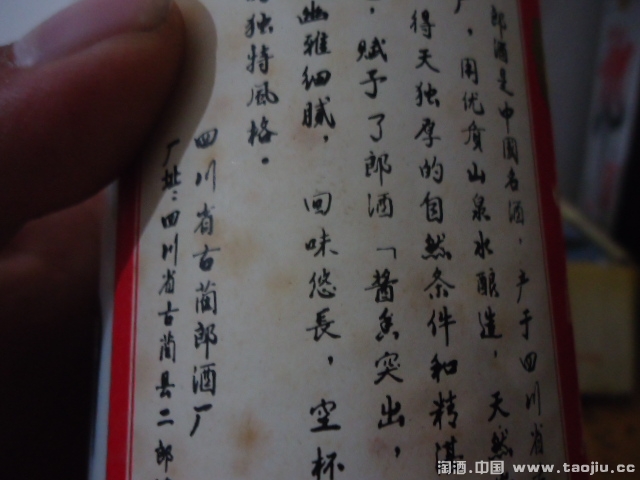 郎酒是中国名酒，产于四川省
，用优质山泉水酿造，天然
得天独厚的自然条件和精湛
，赋予了郎酒「酱香突出，
幽雅细腻，回味悠長，空杯
独特風格。
四川省古蔺郎酒厂
厂址：四川省古蔺县二郎
淘酒.中国 www.taojiu.cc